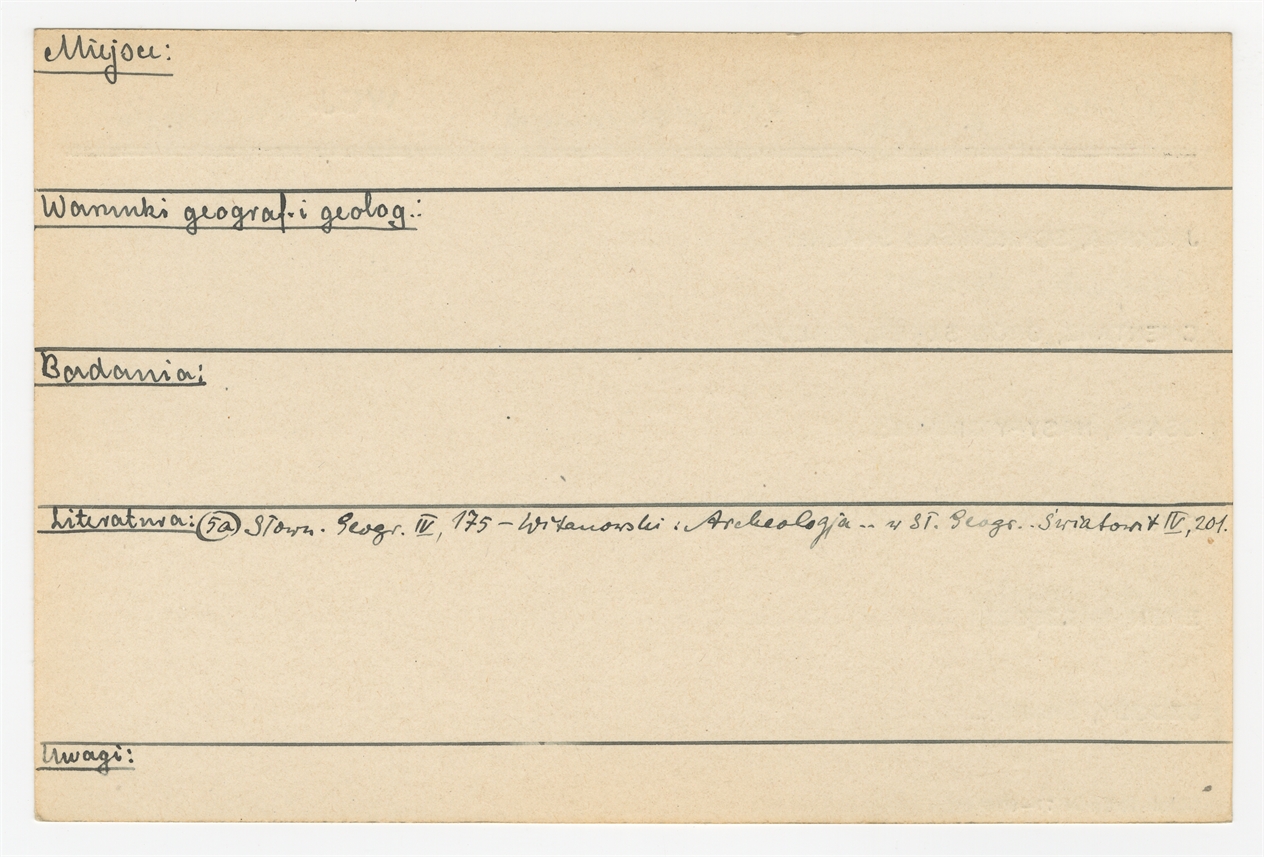 Miejsce:
Warunki geograf. i geolog.:
Badania:
Literatura: (5a) Słown. Geogr. IV, 175 – Witanowski: Archeologja .. w Sł. Geogr. .. Światowit IV, 201.
Uwagi: